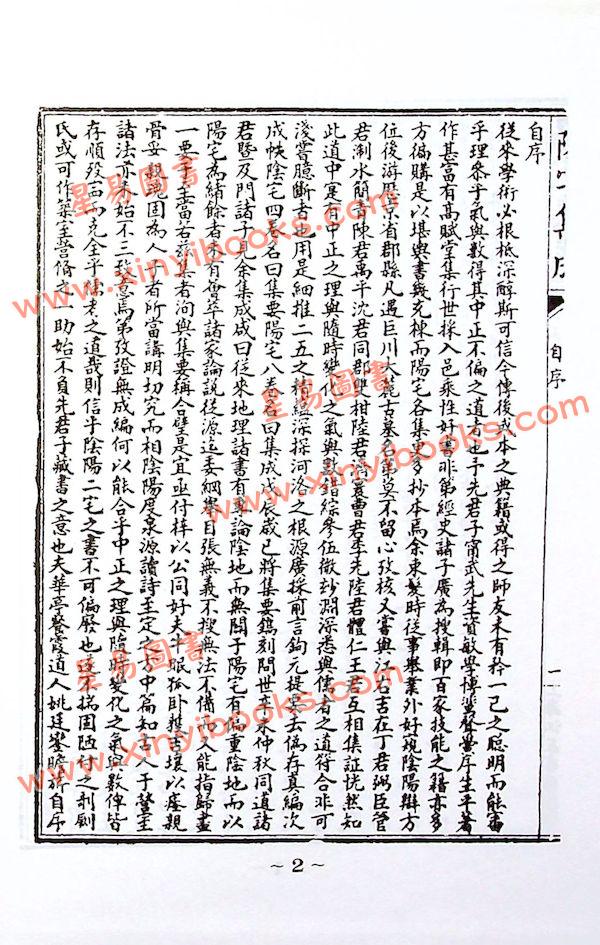 陽宅集成
自序
一
自序
從來學術必根柢深醇斯可信今傳後或本之典籍或得之師友未有矜一己之聰明而能審
乎理參乎氣與數得其中正不偏之道者也予先君子甯武先生資敏學博蜚聲黌序生平著
作甚富有高賦堂集行世採入邑乘性好書非第經史諸子廣為搜輯即百家技能之籍亦多
方徧購是以堪輿書幾充棟而陽宅各集更多抄本焉余束髮時從事舉業外好玩陰陽辯方
位後游歷京省郡縣凡遇巨川大麓古墓名第莫不留心攷核又嘗與江右吉在丁君弼臣管
君淛水闇齋陳君萬平沈君同郡雙柑陸君漪園曹君季先陸君體仁王君互相集証恍然知
此道中寔有中正之理與隨時變化之氣與數錯綜參伍微妙淵深悉與儒者之道符合非可
淺嘗臆斷者也用是細推二五之精蘊深探河洛之根源廣採前言鉤元提要去偽存真編次
成帙陰宅四卷名曰集要陽宅八卷名曰集成戊辰歲已將集要鐫刻問世辛未仲秋同道諸
君暨及門諸子見余集成咸曰從來地理諸書有專論陰地而無關于陽宅有偏重陰地而以
陽宅為緒餘者未有薈萃諸家論說從源迄委綱舉目張無義不搜無法不備而又能指歸盡
一要乎至當若茲集者洵與集要稱合璧是宜亟付梓以公同好夫牛眠狐卧擇吉壤以瘞親
骨妥親魂固為人子者所當講明切究而相陰陽度泉源讀詩至定之方中篇知古人于營室
諸法亦未始不三致意焉第攷證無成編何以能合乎中正之理與隨時變化之氣與數俾皆
存順歿甯而克全乎陳老之道哉則信乎陰陽二宅之書不可偏廢也遂不揣固陋付之剞劂
氏或可作築室營脩之一助始不負先君子藏書之意也夫華亭餐霞道人姚廷鑾瞻旂自序
星易圖書
www.xinyibooks.com
星易圖書
www.xinyibooks.com
星易圖書
www.xinyibooks.com
~2~